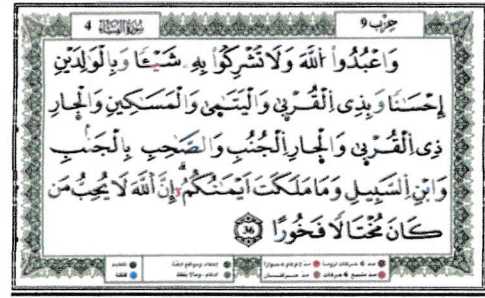 سُورَةُ النِّسَاءِ 4 حِزْب 9
وَاعْبُدُواْ اللَّهَ وَلَا تُشْرِكُواْ بِهِۦ شَيْـٔٗا وَبِالْوَٰلِدَيْنِ
إِحْسَٰنٗا وَبِذِى اِلْقُرْبَىٰ وَالْيَتَٰمَىٰ وَالْمَسَٰكِينِ وَالْجَارِ
ذِى اِلْقُرْبَىٰ وَالْجَارِ اِلْجُنُبِ وَالصَّاحِبِ بِالْجَنۢبِ
وَابْنِ اِلسَّبِيلِ وَمَا مَلَكَتَ اَيْمَٰنُكُمُۥٓ إِنَّ اَللَّهَ لَا يُحِبُّ مَن
كَانَ مُخْتَالٗا فَخُورًا 36